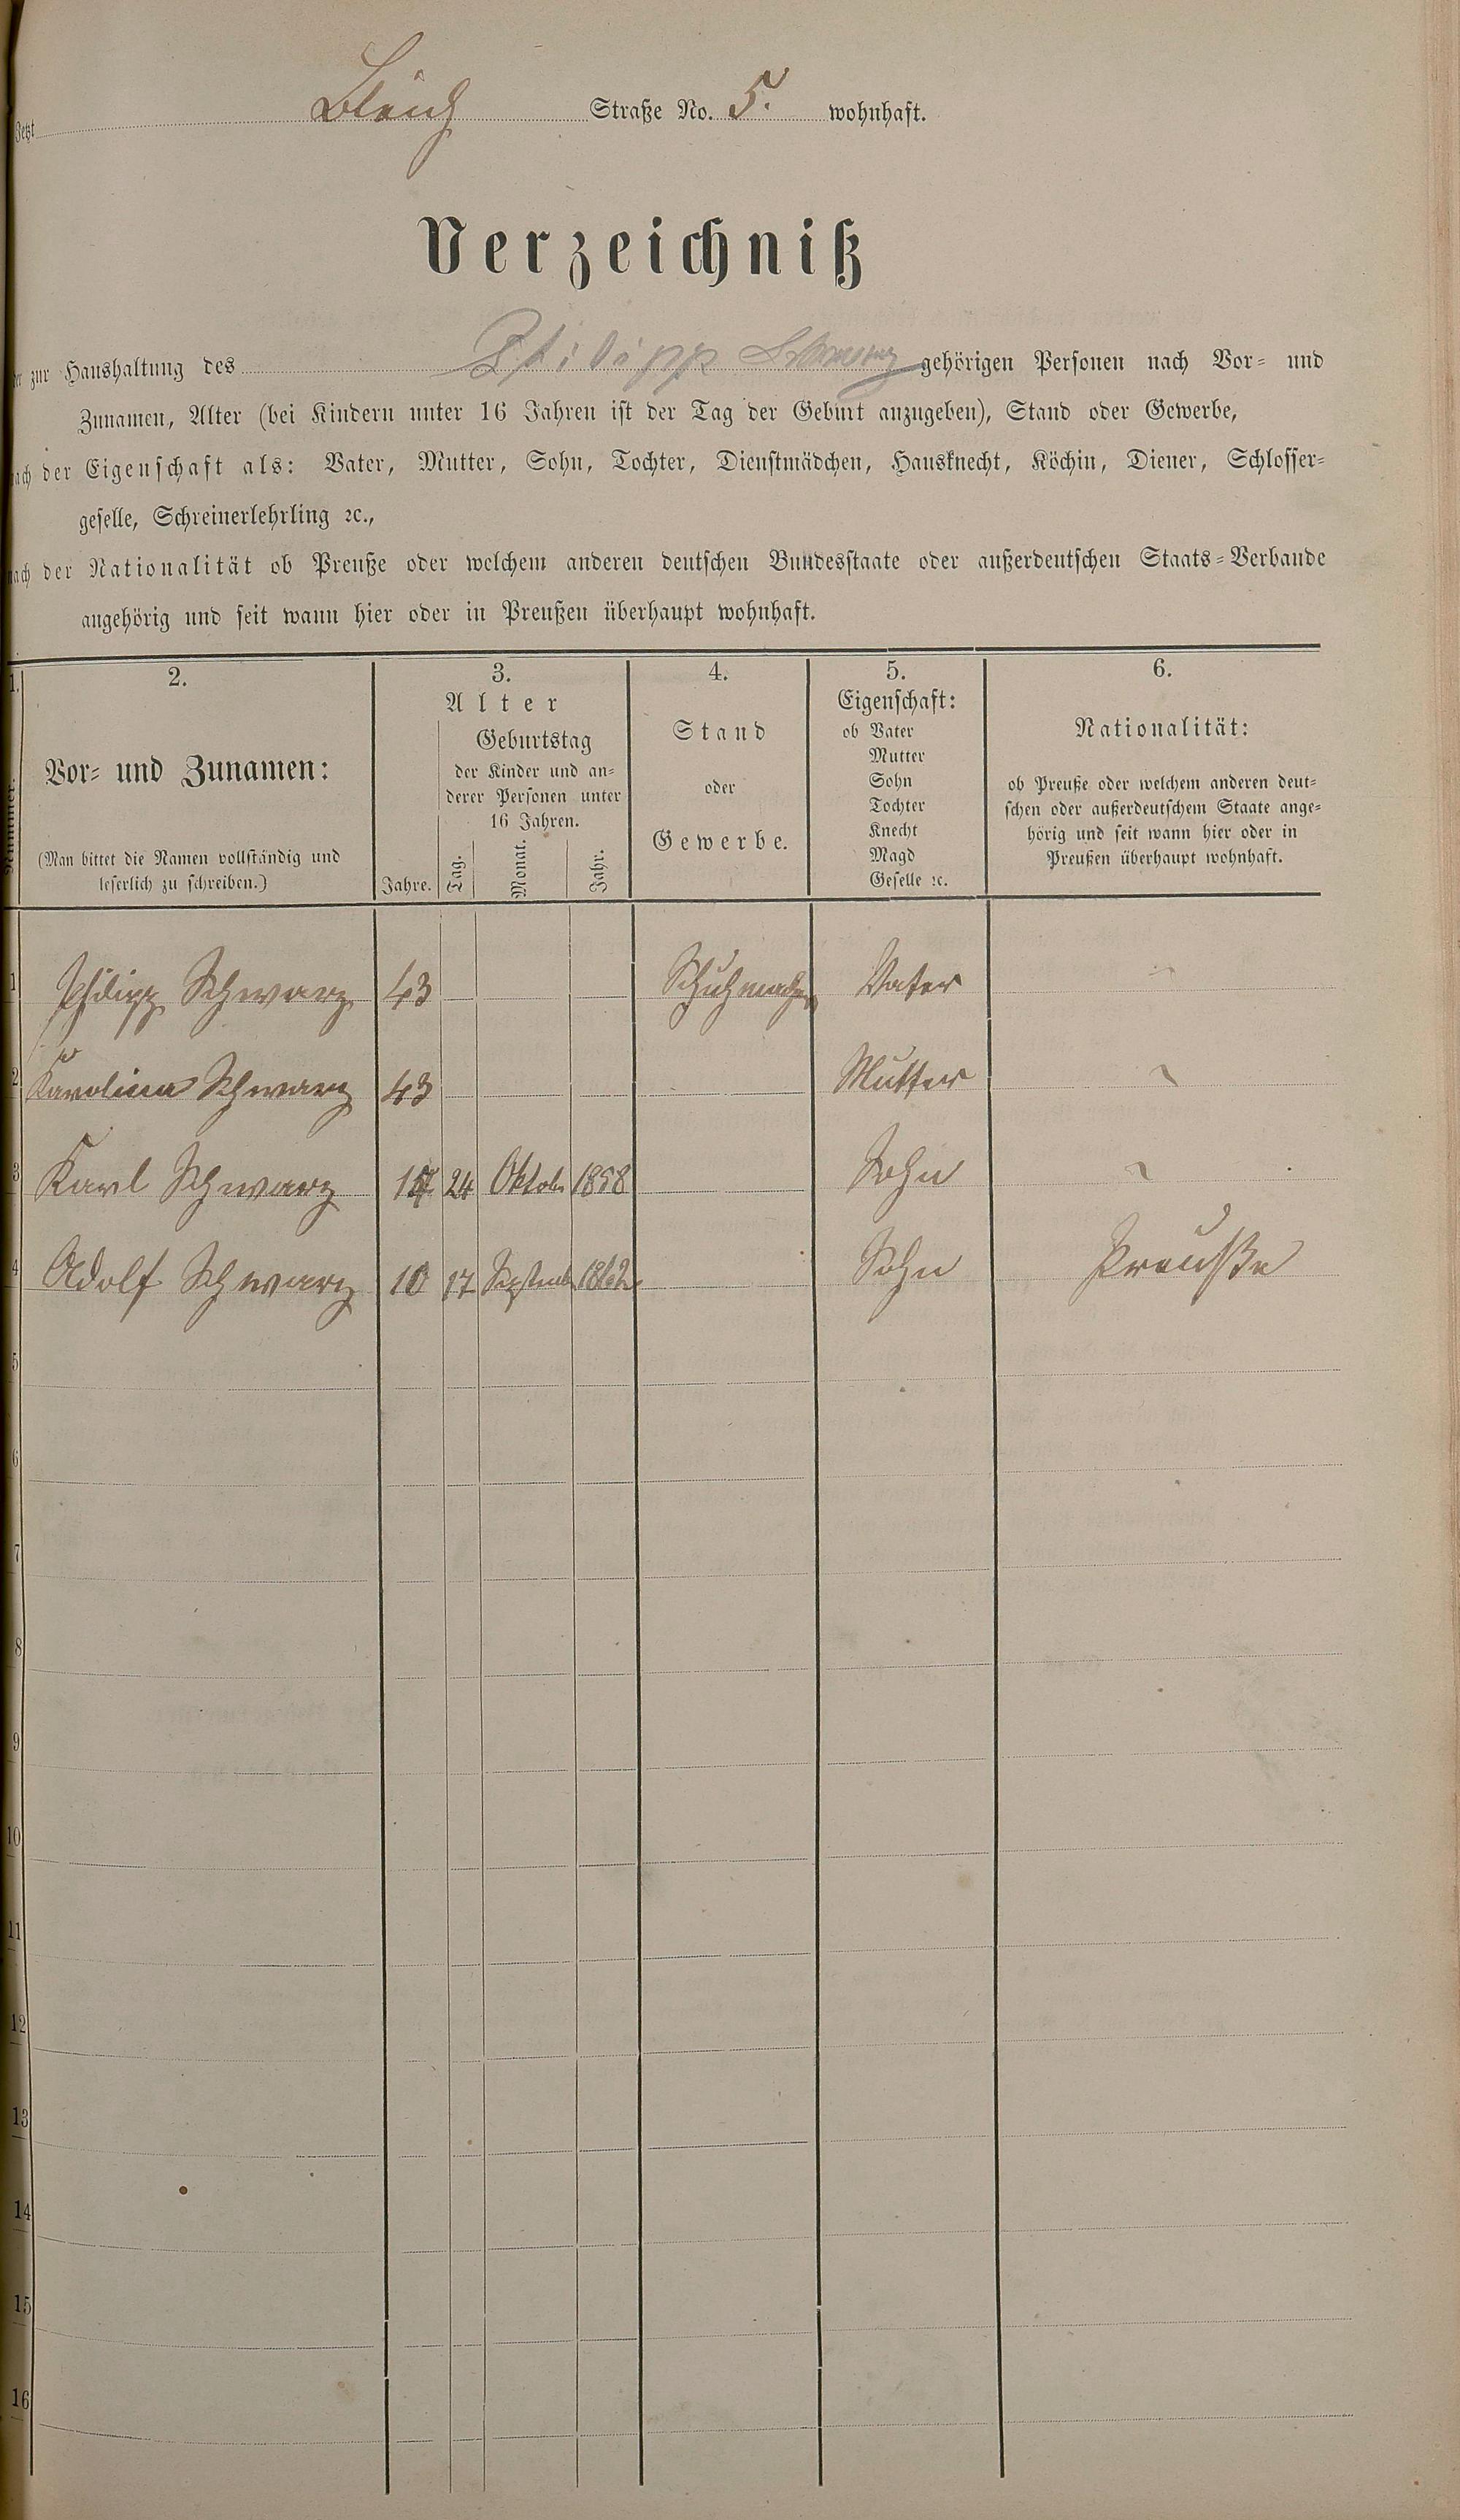 Jetzt Bleich Straße No. 5. wohnhaft.
Verzeichniß
der zur Haushaltung des Philipp Schwarz gehörigen Personen nach Vor- und
Zunamen, Alter (bei Kindern unter 16 Jahren ist der Tag der Geburt anzugeben), Stand oder Gewerbe,
nach der Eigenschaft als: Vater, Mutter, Sohn, Tochter, Dienstmädchen, Hausknecht, Köchin, Diener, Schlosser-
geselle, Schreinerlehrling ꝛc.,
nach der Nationalität ob Preuße oder welchem anderen deutschen Bundesstaate oder außerdeutschen Staats-Verbande
angehörig und seit wann hier oder in Preußen überhaupt wohnhaft.
1.
Nummer.
2.
Vor- und Zunamen:
(Man bittet die Namen vollständig und
leserlich zu schreiben.)
3.
Alter
Jahre.
Geburtstag
der Kinder und an-
derer Personen unter
16 Jahren.
Tag. Monat. Jahr.
4.
Stand
oder
Gewerbe.
5.
Eigenschaft:
ob Vater
Mutter
Sohn
Tochter
Knecht
Magd
Geselle ꝛc.
6.
Nationalität:
ob Preuße oder welchem anderen deut-
schen oder außerdeutschem Staate ange-
hörig und seit wann hier oder in
Preußen überhaupt wohnhaft.
1 Philipp Schwarz 43 Schuhmacher Vater
2 Karolina Schwarz 43 Mutter
3 Karl Schwarz 24 Oktob 1858 Sohn
4 Adolf Schwarz 10 17 Septemb 1862 Sohn Preuße
5
6
7
8
9
10
11
12
13
14
15
16